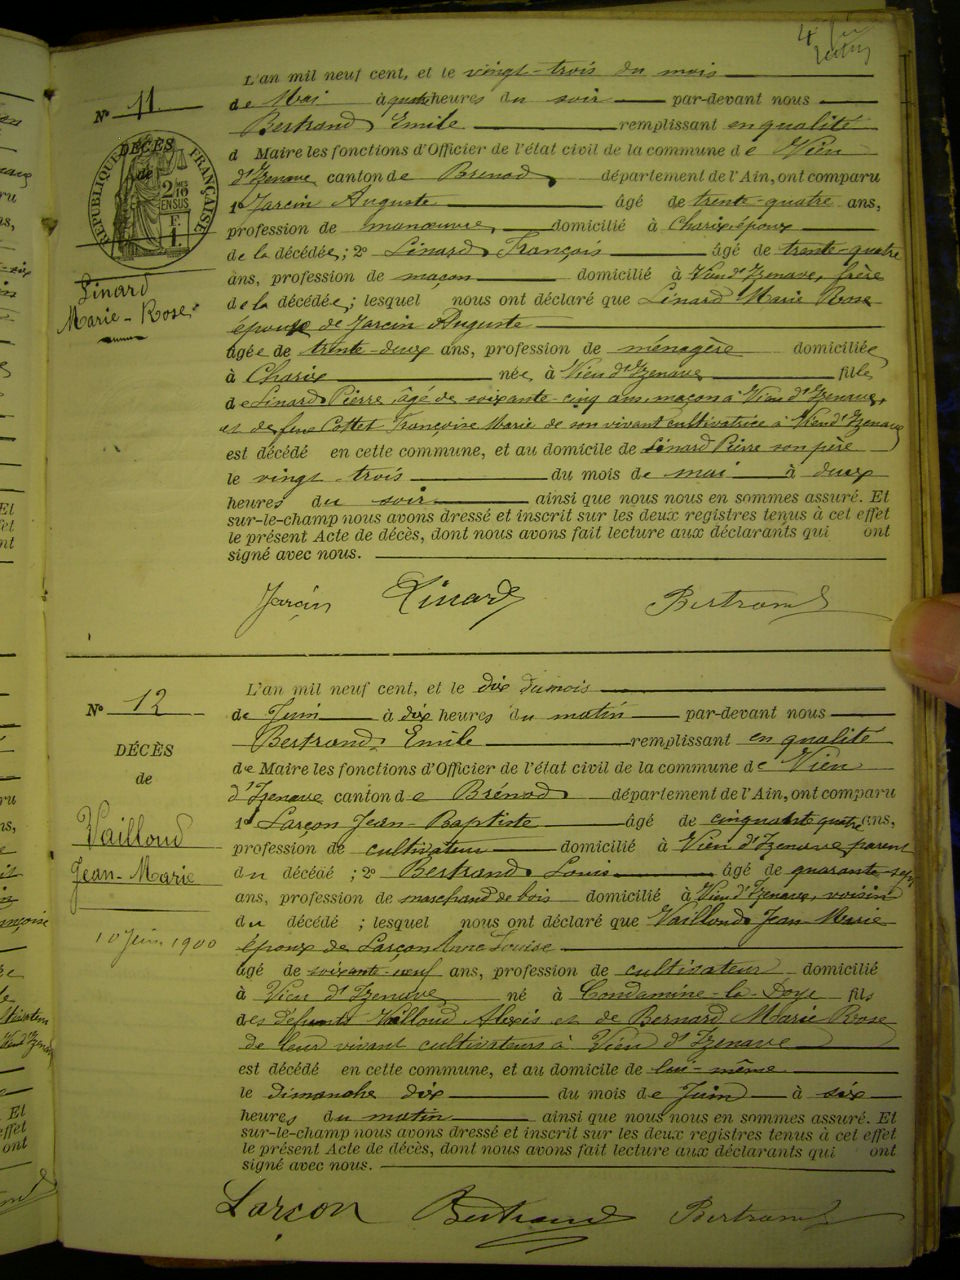 4
L'an mil neuf cent, et le vingt-trois du mois
N° 11
de Mai à quatre heures du soir par-devant nous
Bertrand Emile remplissant en qualité
d Maire les fonctions d'Officier de l'état civil de la commune de Vieu
d'Izenave canton de Brénod département de l'Ain, ont comparu
1° Jarcin Auguste âgé de trente-quatre ans,
profession de manœuvre domicilié à Charix époux
de la décédée; 2° Linard François âgé de trente-quatre
ans, profession de maçon domicilié à Vieu d'Izenave, frère
de la décédée; lesquel nous ont déclaré que Linard Marie Rose
épouse de Jarcin Auguste
âgée de trente-deux ans, profession de ménagère domiciliée
à Charix née à Vieu d'Izenave fille
de Linard Pierre, âgé de soixante-cinq ans, maçon à Vieu d'Izenave,
et de feue Cottet Françoise Marie de son vivant cultivatrice à Vieu d'Izenave
est décédé en cette commune, et au domicile de Linard Pierre son père
le vingt trois du mois de mai à deux
heures du soir ainsi que nous nous en sommes assuré. Et
sur-le-champ nous avons dressé et inscrit sur les deux registres tenus à cet effet
le présent Acte de décès, dont nous avons fait lecture aux déclarants qui ont
signé avec nous.
DÉCÈS
de
RÉPUBLIQUE FRANÇAISE
2/10 EN SUS
Linard
Marie-Rose
Jarcin Linard Bertrand
L'an mil neuf cent, et le dix du mois
N° 12
de Juin à dix heures du matin par-devant nous
Bertrand Emile remplissant en qualité
de Maire les fonctions d'Officier de l'état civil de la commune de Vieu
d'Izenave canton de Brénod département de l'Ain, ont comparu
1° Larçon Jean-Baptiste âgé de cinquante quatre ans,
profession de cultivateur domicilié à Vieu d'Izenave parent
du décédé; 2° Bertrand Louis âgé de quarante-sept
ans, profession de marchand de bois domicilié à Vieu d'Izenave, voisin
du décédé; lesquel nous ont déclaré que Vailloud Jean-Marie
époux de Larçon Anne Louise
âgé de soixante-neuf ans, profession de cultivateur domicilié
à Vieu d'Izenave né à Condamine-la-Doye fils
des défunts Vailloud Alexis et de Bernard Marie Rose
de leur vivant cultivateurs à Vieu d'Izenave
est décédé en cette commune, et au domicile de lui-même
le Dimanche dix du mois de Juin à six
heures du matin ainsi que nous nous en sommes assuré. Et
sur-le-champ nous avons dressé et inscrit sur les deux registres tenus à cet effet
le présent Acte de décès, dont nous avons fait lecture aux déclarants qui ont
signé avec nous.
DÉCÈS
de
Vailloud
Jean-Marie
10 Juin 1900
Larçon Bertrand Bertrand